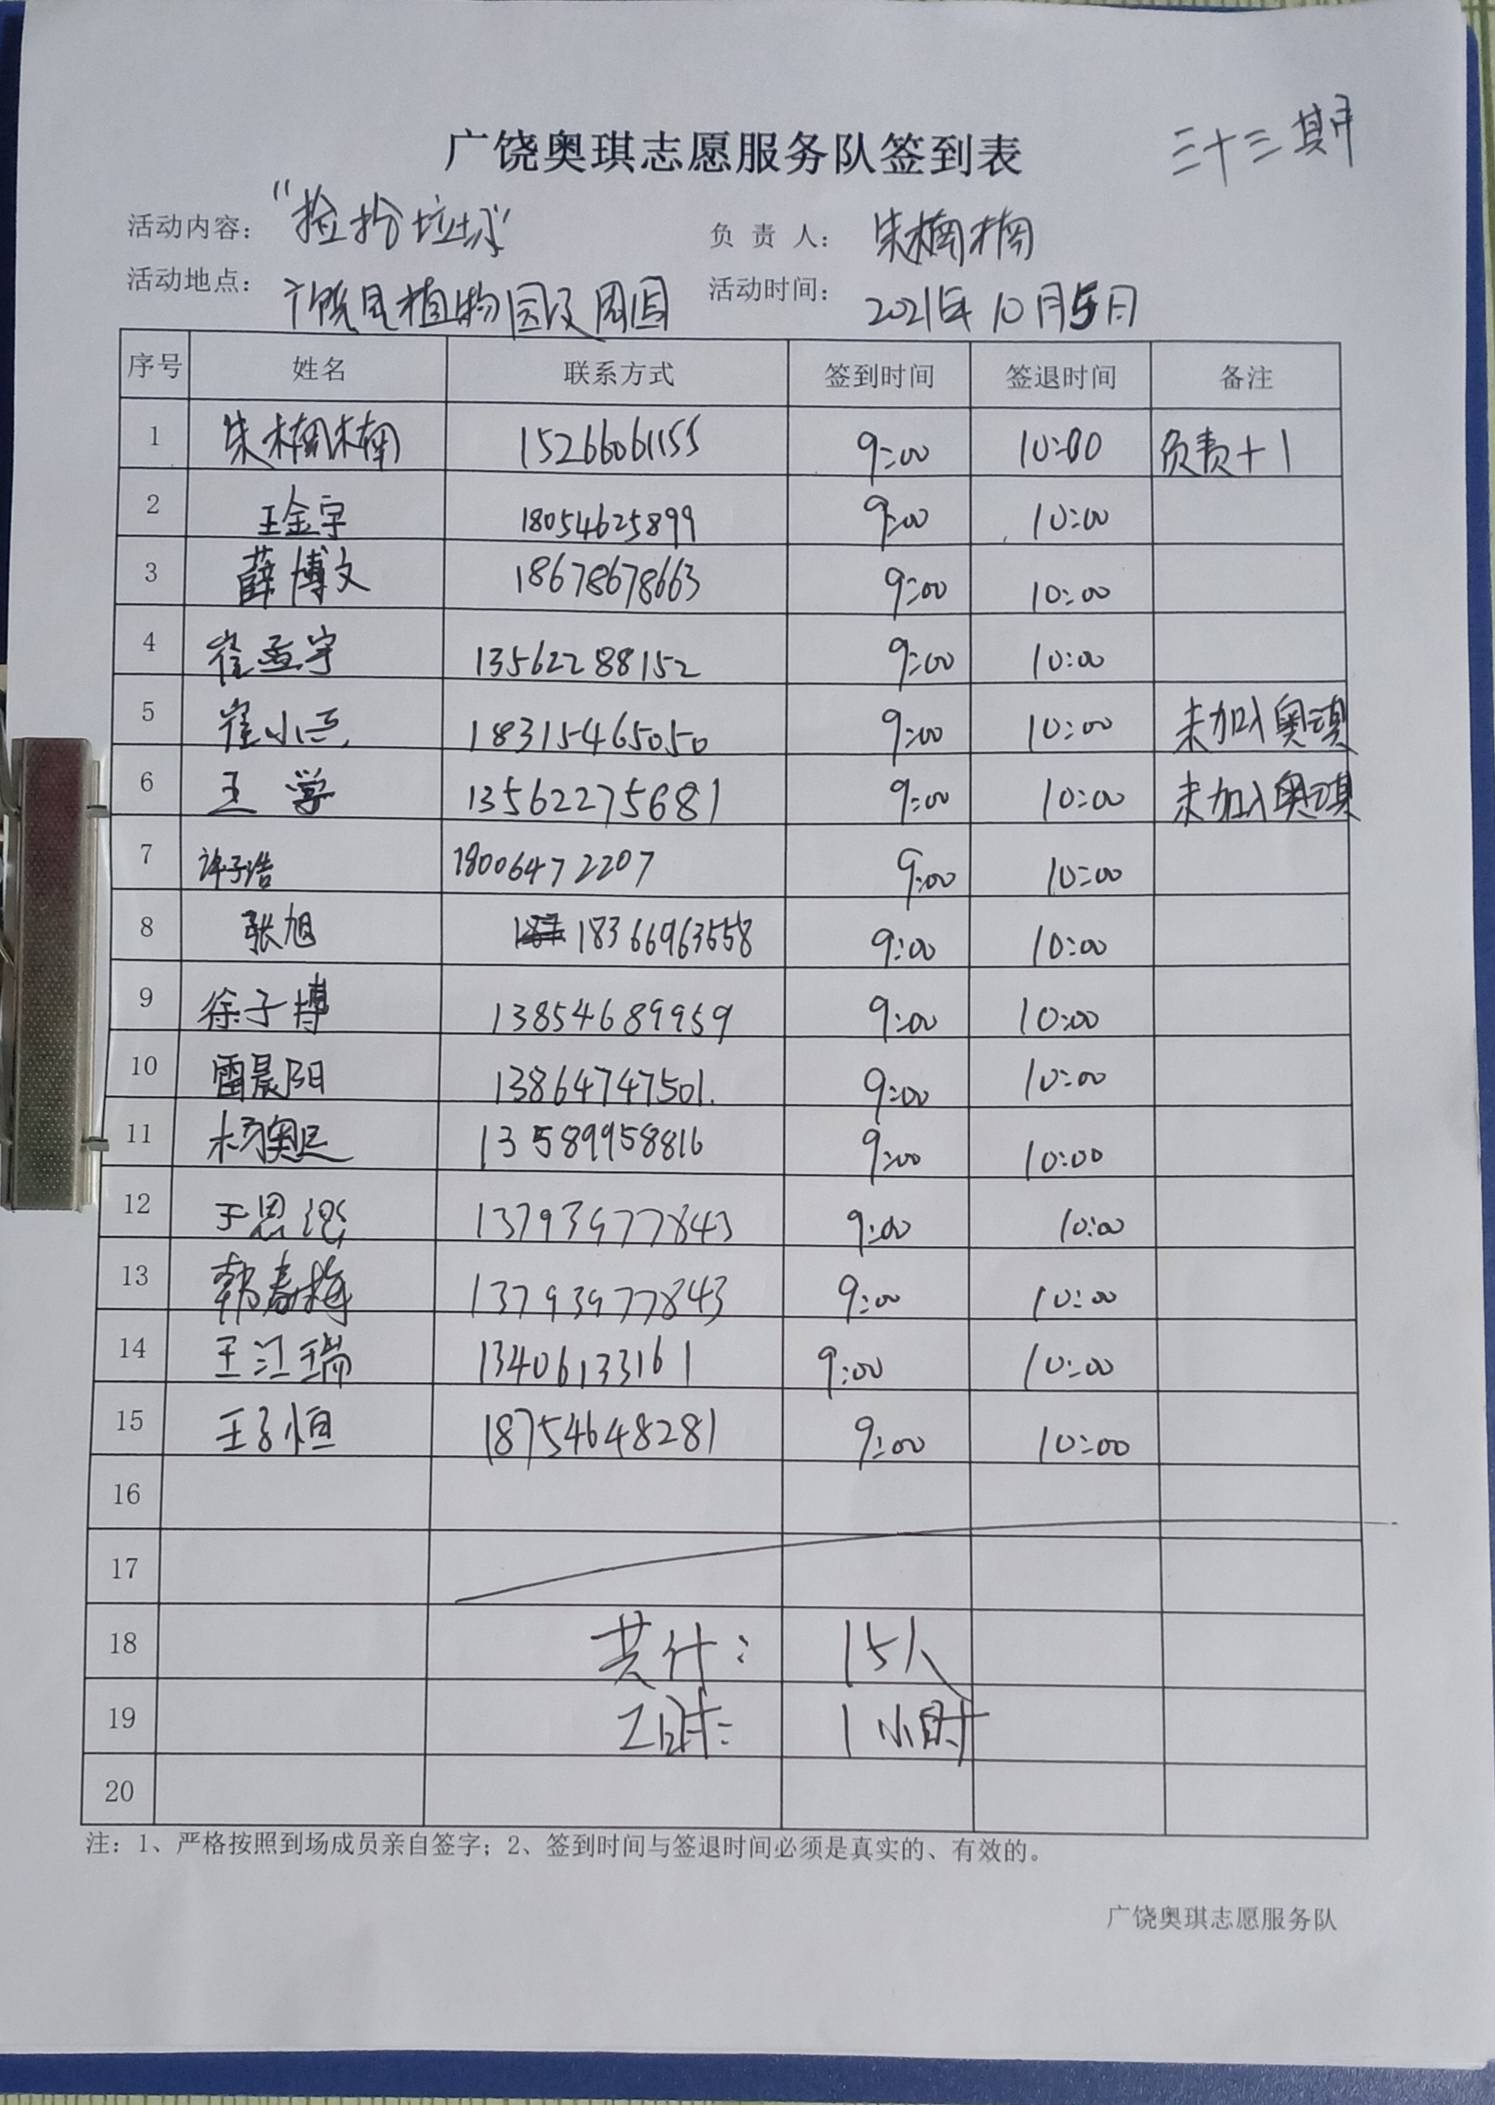 三十三期
广饶奥琪志愿服务队签到表
活动内容： “捡拾垃圾” 负 责 人： 朱楠楠
活动地点： 广饶县植物园及周围 活动时间： 2021年10月5日
序号 姓名 联系方式 签到时间 签退时间 备注
1 朱楠楠 15266061155 9:00 10:00 负责+1
2 王金宇 18054625899 9:00 10:00
3 薛博文 18678678663 9:00 10:00
4 崔孟宇 13562288152 9:00 10:00
5 崔小 18315465050 9:00 10:00 未加入奥琪
6 王学 13562275681 9:00 10:00 未加入奥琪
7 许子浩 18006472207 9:00 10:00
8 张旭 18366963558 9:00 10:00
9 徐子博 13854689959 9:00 10:00
10 雷晨阳 13864747501. 9:00 10:00
11 杨奥 13589958816 9:00 10:00
12 于思 13793977843 9:00 10:00
13 韩春梅 13793977843 9:00 10:00
14 王江瑞 13406133161 9:00 10:00
15 王子恒 18754648281 9:00 10:00
16
17
18 共计： 15人
19 工时： 1小时
20
注：1、严格按照到场成员亲自签字；2、签到时间与签退时间必须是真实的、有效的。
广饶奥琪志愿服务队